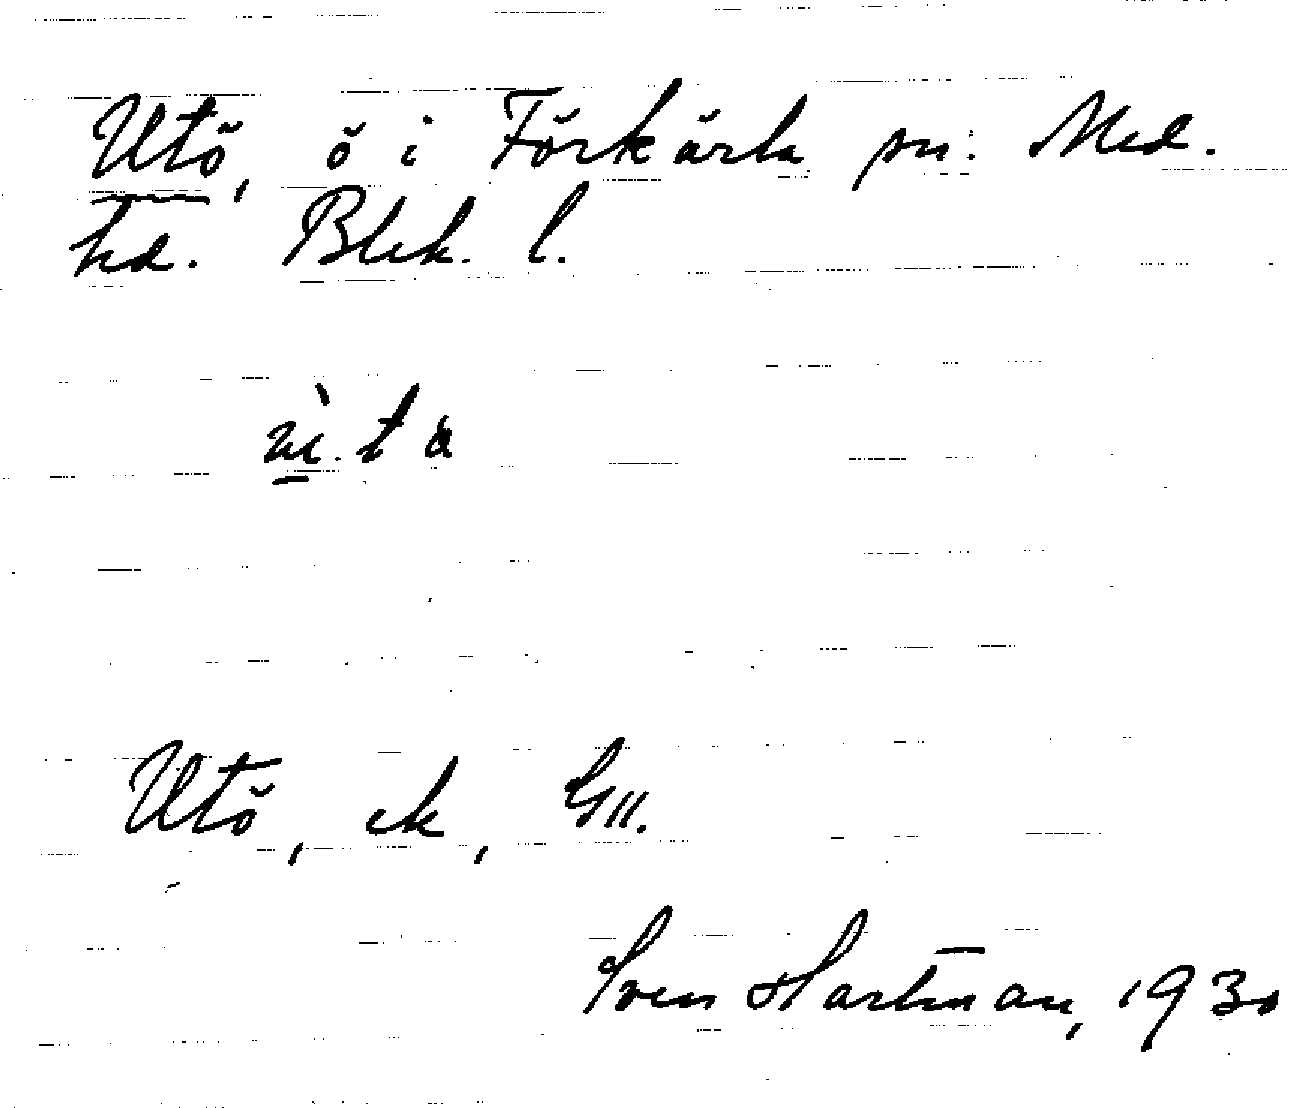 Utö, ö i Förkärla sn. Med.
hd. Blek. l.
Utö, ek, GII.
Sven Hartman, 1930